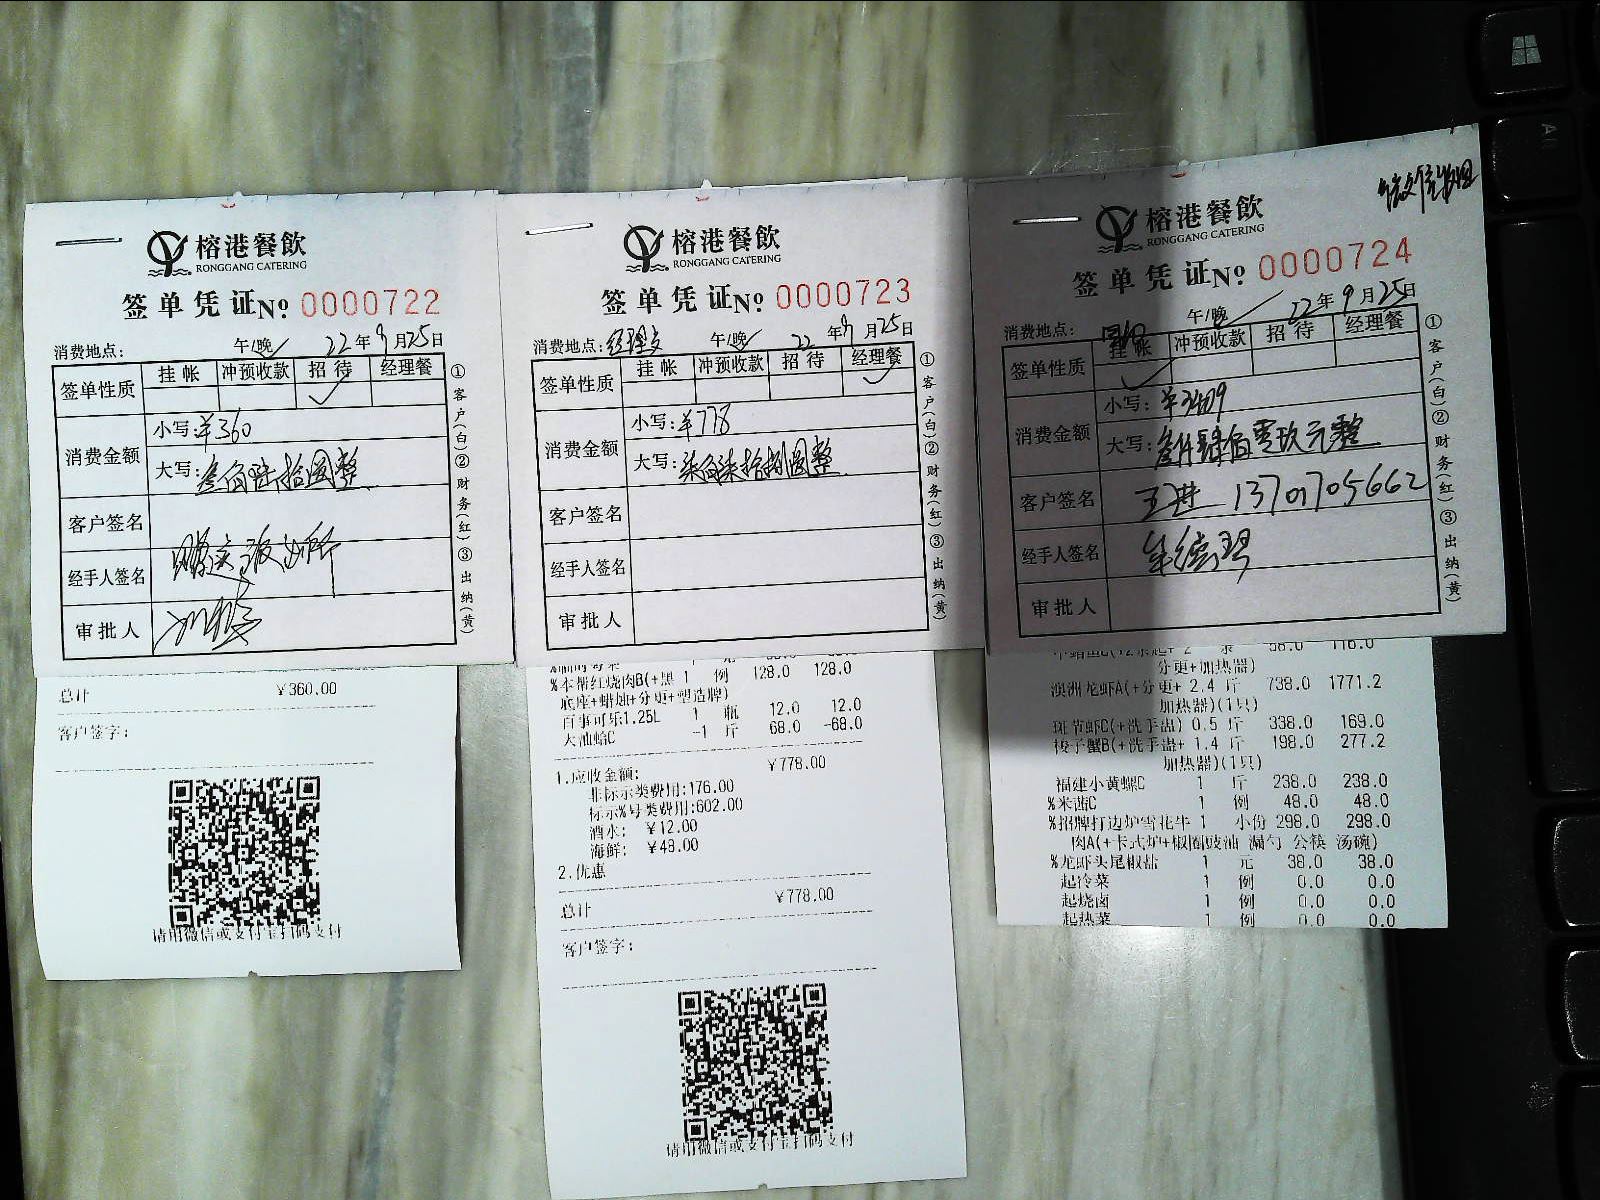 榕港餐飲
RONGGANG CATERING
签单凭证No. 0000722
消费地点: 午/晚✓ 22年9月25日
签单性质 挂帐 冲预收款 招待 经理餐
✓
消费金额 小写:¥360
大写:叁佰陆拾圆整
客户签名
经手人签名
审批人
①客户(白)②财务(红)③出纳(黄)
总计 ¥360.00
客户签字:
请用微信或支付宝扫码支付
榕港餐飲
RONGGANG CATERING
签单凭证No. 0000723
消费地点:经理 午/晚✓ 22年9月25日
签单性质 挂帐 冲预收款 招待 经理餐
✓
消费金额 小写:¥778
大写:柒佰柒拾捌圆整
客户签名
经手人签名
审批人
①客户(白)②财务(红)③出纳(黄)
%本帮红烧肉B(+黑 1 例 128.0 128.0
底座+蜡烛+分更+塑造牌)
百事可乐1.25L 1 瓶 12.0 12.0
大油蛤C -1 斤 68.0 -68.0
1.应收金额: ¥778.00
非标示类费用:176.00
标示%号类费用:602.00
酒水: ¥12.00
海鲜: ¥48.00
2.优惠
总计 ¥778.00
客户签字:
请用微信或支付宝扫码支付
榕港餐飲
RONGGANG CATERING
签单凭证No. 0000724
消费地点: 午/晚 22年9月25日
签单性质 挂帐 冲预收款 招待 经理餐
✓
消费金额 小写:¥3409
大写:叁仟肆佰零玖元整
客户签名 13701705662
经手人签名
审批人
①客户(白)②财务(红)③出纳(黄)
分更+加热器)
澳洲龙虾A(+分更+ 2.4 斤 738.0 1771.2
加热器)(1只)
斑节虾C(+洗手盅) 0.5 斤 338.0 169.0
梭子蟹B(+洗手盅+ 1.4 斤 198.0 277.2
加热器)(1只)
福建小黄螺C 1 斤 238.0 238.0
%米茜C 1 例 48.0 48.0
%招牌打边炉雪花牛 1 小份 298.0 298.0
肉A(+卡式炉+椒圈豉油 漏勺 公筷 汤碗)
%龙虾头尾椒盐 1 元 38.0 38.0
起冷菜 1 例 0.0 0.0
起烧卤 1 例 0.0 0.0
起热菜 1 例 0.0 0.0